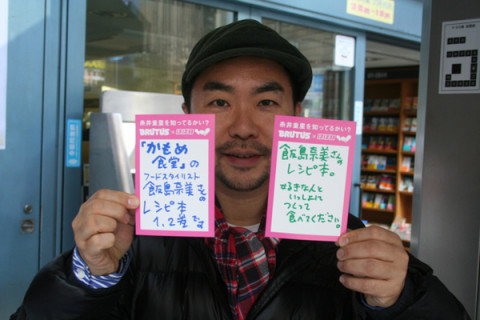 糸井重里を知ってるかい?
BRUTUS ×
『かもめ
食堂』の
フードスタイリスト
飯島奈美さんの
レシピ本
1、2巻です。
糸井重里を知ってるかい?
BRUTUS ×
飯島奈美さんの
レシピ本。
いっしょに
つくって
食べてください。